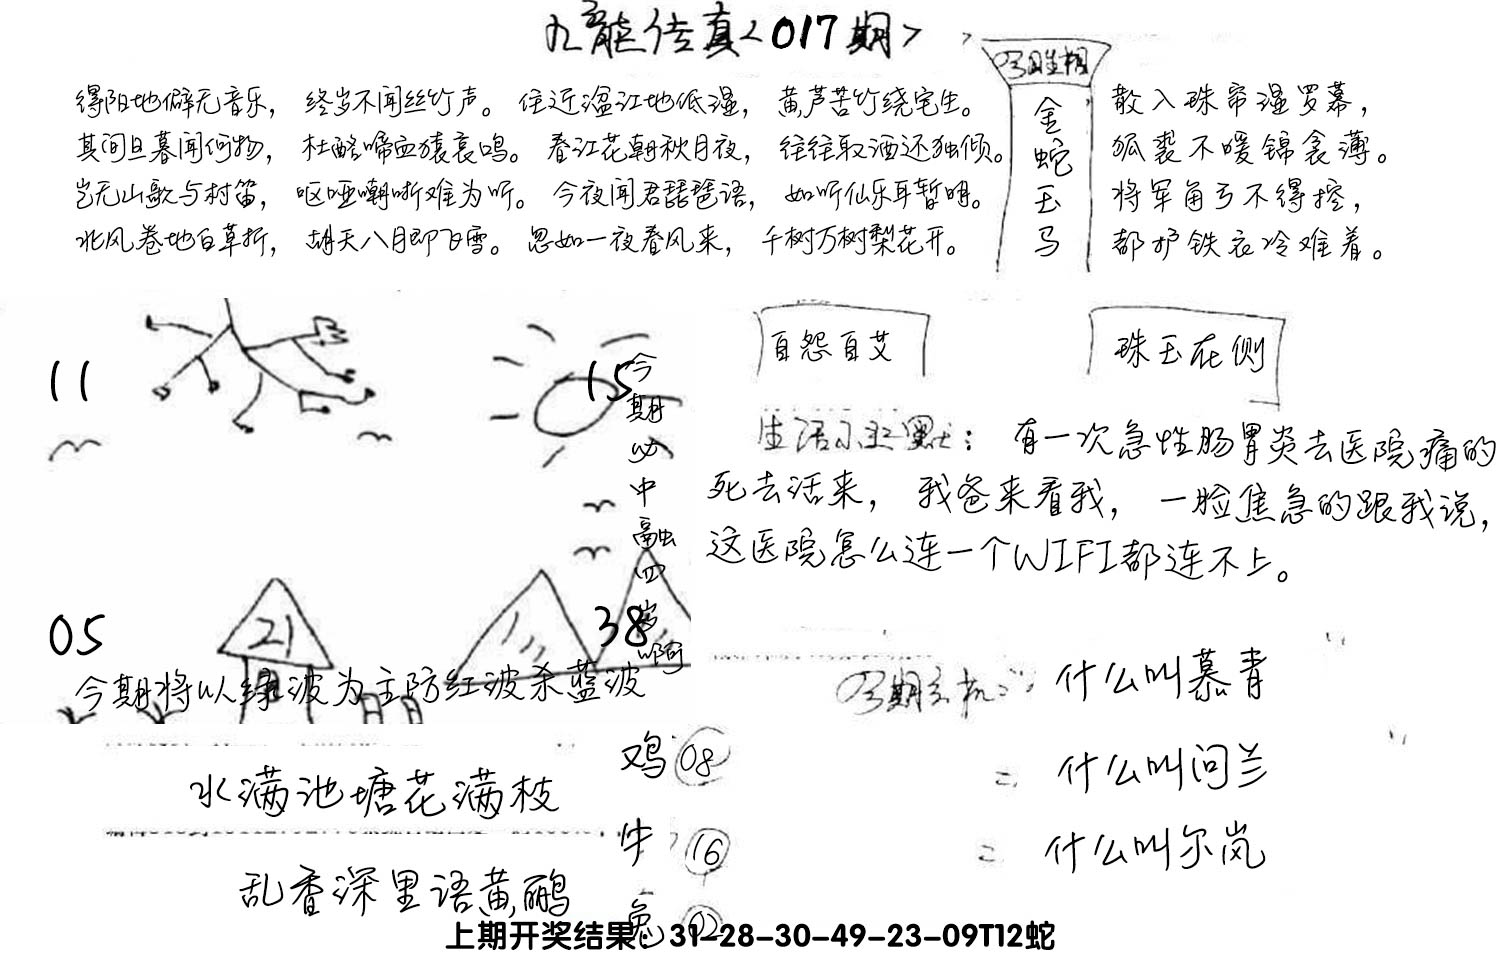 九龙传真<017期>
今期生相
金蛇玉马
浔阳地僻无音乐，终岁不闻丝竹声。住近湓江地低湿，黄芦苦竹绕宅生。
其间旦暮闻何物，杜鹃啼血猿哀鸣。春江花朝秋月夜，往往取酒还独倾。
岂无山歌与村笛，呕哑嘲哳难为听。今夜闻君琵琶语，如听仙乐耳暂明。
北风卷地白草折，胡天八月即飞雪。忽如一夜春风来，千树万树梨花开。
散入珠帘湿罗幕，
狐裘不暖锦衾薄。
将军角弓不得控，
都护铁衣冷难着。
11
15
今期必中融四岁啊
05
21
38
今期将以绿波为主防红波杀蓝波
自怨自艾
珠玉在侧
生活小幽默：有一次急性肠胃炎去医院痛的
死去活来，我爸来看我，一脸焦急的跟我说，
这医院怎么连一个WIFI都连不上。
今期玄机：什么叫慕青
什么叫问兰
什么叫尔岚
水满池塘花满枝
乱香深里语黄鹂
鸡 08
牛 16
兔 02
上期开奖结果：31-28-30-49-23-09T12蛇